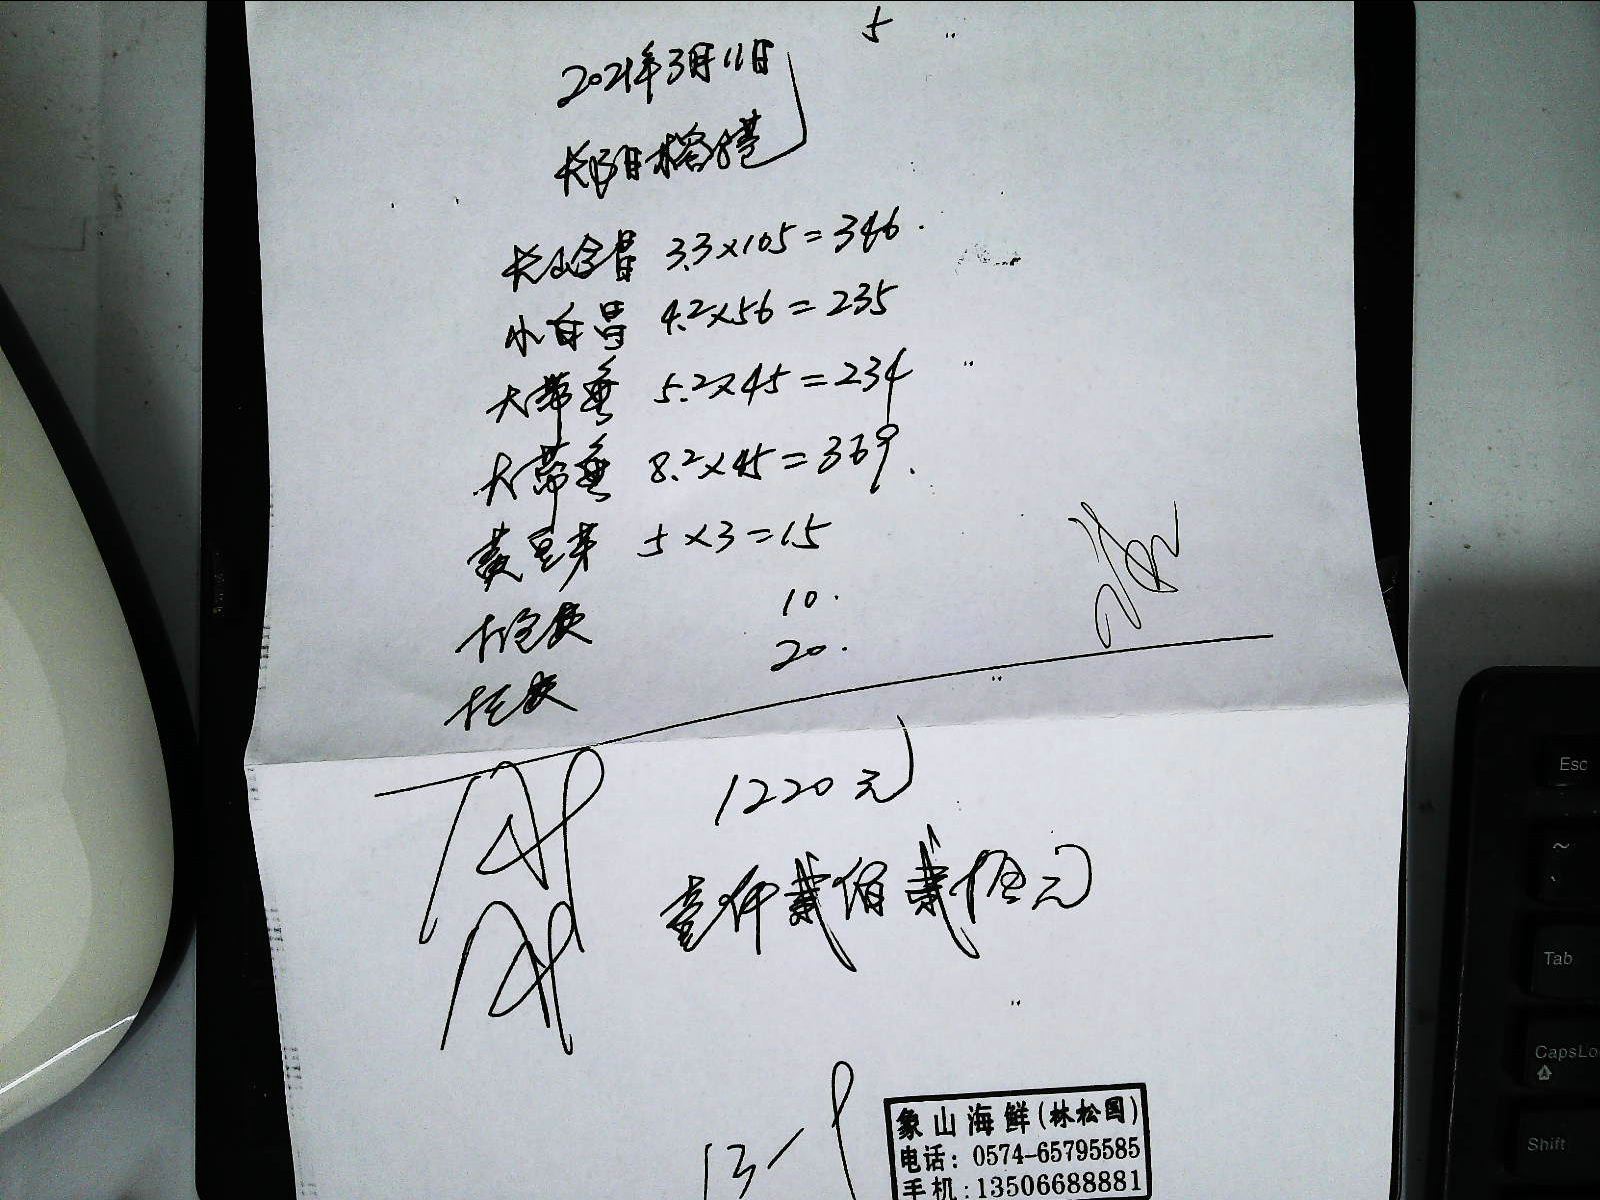 5
2021年3月11日
长山舍昌 3.3×105=346
小白昌 4.2×56=235
大带鱼 5.2×45=234
大带鱼 8.2×45=369
黄豆芽 5×3=15
10
20
1220元
壹仟贰佰贰拾元
13-
象山海鲜(林松国)
电话: 0574-65795585
手机:13506688881
Esc
~
Tab
CapsLo
Shift